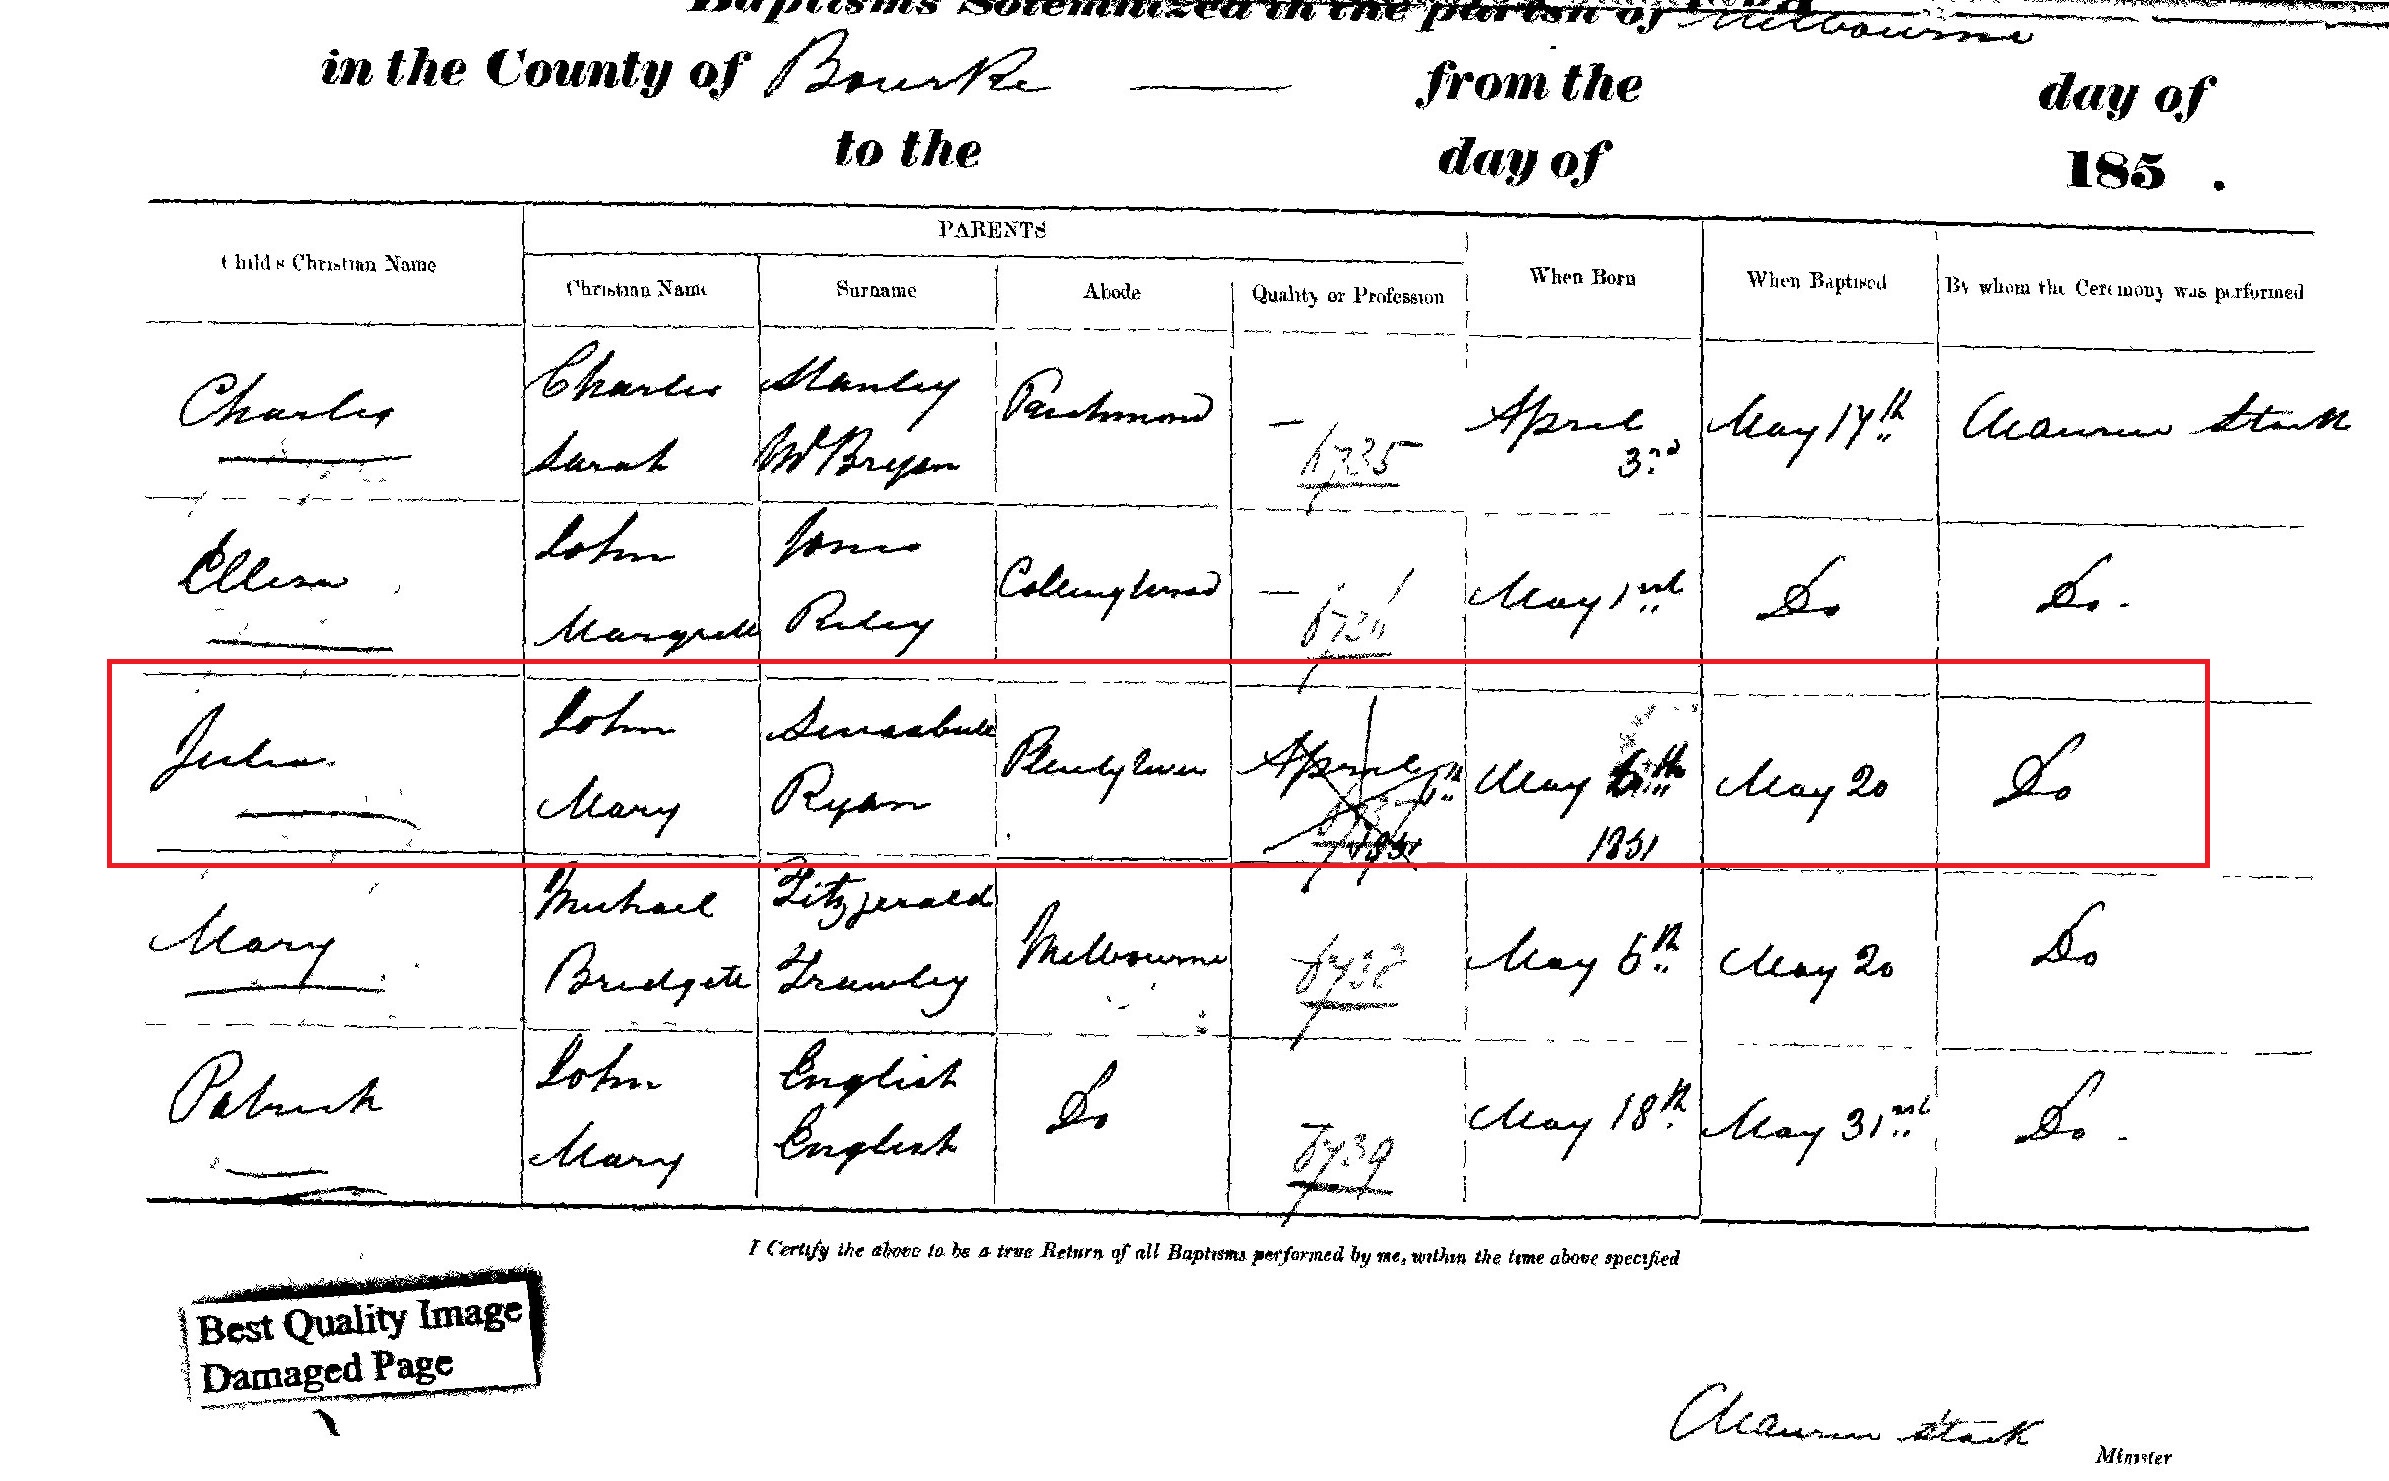 Baptisms Solemnized in the parish of Melbourne
in the County of Bourke from the day of
to the day of 185 .
PARENTS
Child's Christian Name Christian Name Surname Abode Quality or Profession When Born When Baptised By whom the Ceremony was performed
Charles Charles Stanley Richmond — 6735 April 3rd May 17th Maurice Stack
Sarah McBryan
Ellen John Jones Collingwood — 6736 May 1st Do Do.
Margrett Riley
Julia John Plenty River April 6th May 6th May 20 Do
Mary Ryan 1851 1851
Mary Michael Fitzgerald Melbourne 6738 May 6th May 20 Do
Bridgett Frawley
Patrick John English Do 6739 May 18th May 31st Do.
Mary English
I Certify the above to be a true Return of all Baptisms performed by me, within the time above specified
Best Quality Image
Damaged Page
Maurice Stack
Minister